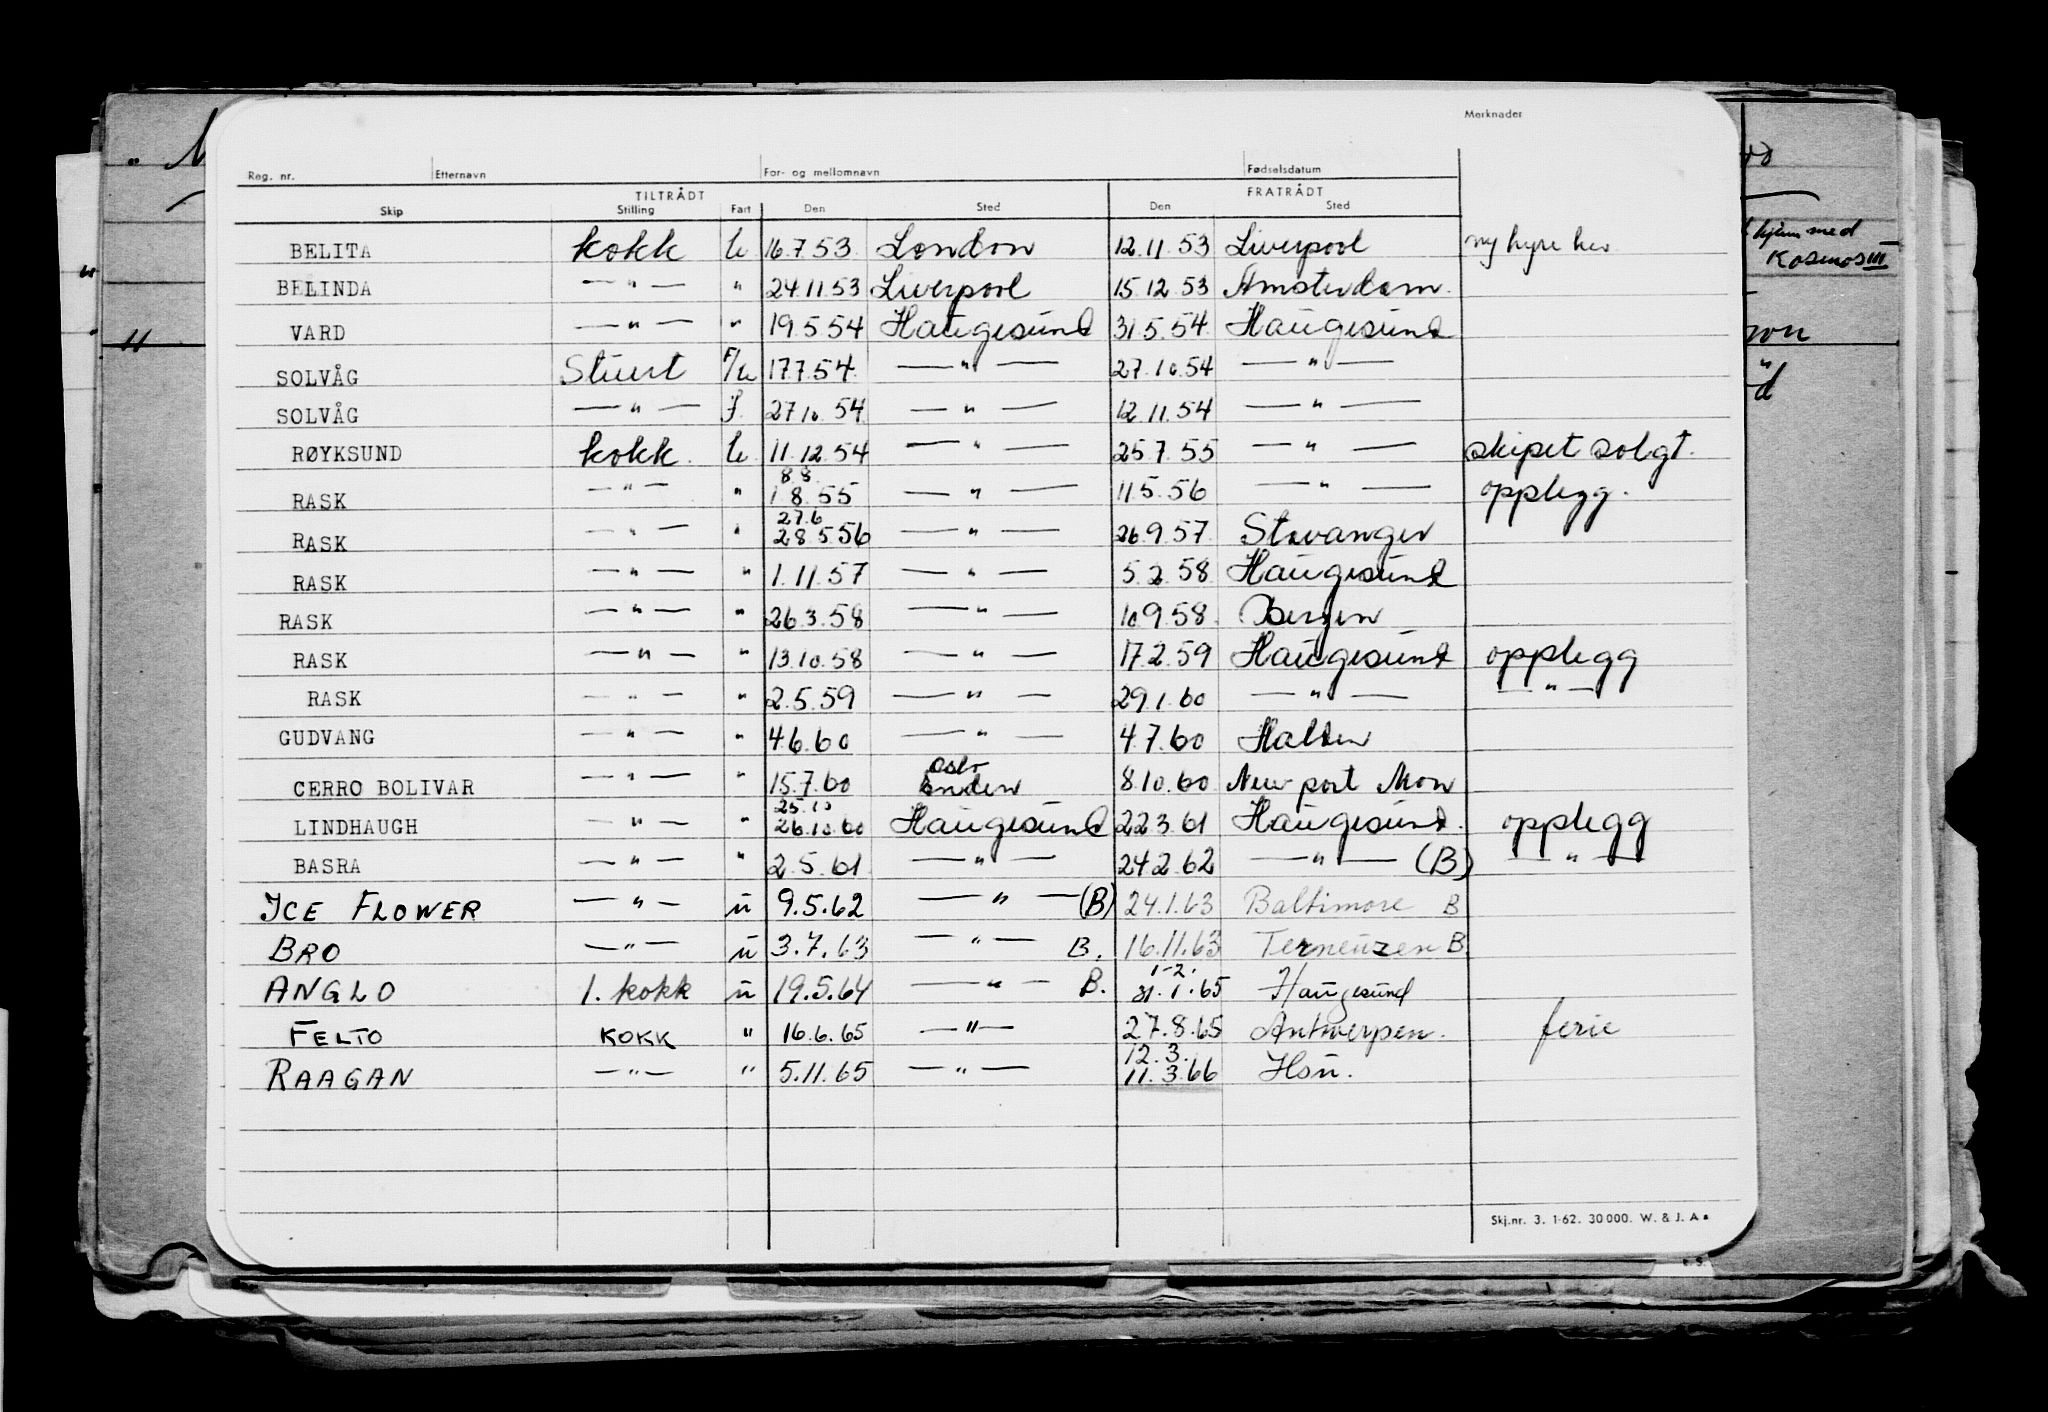 Merknader
Reg. nr. Etternavn For- og mellomnavn Fødselsdatum
TILTRÅDT FRATRÅDT
Skip Stilling Fart Den Sted Den Sted
BELITA kokk u 16.7.53 London 12.11.53 Liverpool ny hyre her
BELINDA —"— " 24.11.53 Liverpool 15.12.53 Amsterdam.
VARD —"— " 19.5.54 Haugesund 31.5.54 Haugesund
SOLVÅG Stuert F/u 17.7.54 —"— 27.10.54 —"—
SOLVÅG —"— f. 27.10.54 —"— 12.11.54 —"—
RØYKSUND kokk. u 11.12.54 —"— 25.7.55 —"— skipet solgt.
8.8.
RASK —"— " 1.8.55 —"— 11.5.56 —"— opplegg.
27.6
RASK —"— " 28.5.56 —"— 26.9.57 Stavanger
RASK —"— " 1.11.57 —"— 5.2.58 Haugesund
RASK —"— " 26.3.58 —"— 10.9.58 Bergen
RASK —"— " 13.10.58 —"— 17.2.59 Haugesund opplegg
RASK —"— " 2.5.59 —"— 29.1.60 —"— —"—
GUDVANG —"— " 4.6.60 —"— 4.7.60 Halden
Oslo
CERRO BOLIVAR —"— " 15.7.60 Emden 8.10.60 New port Mon
25.10
LINDHAUGH —"— " 26.10.60 Haugesund 22.3.61 Haugesund. opplegg
BASRA —"— " 2.5.61 —"— 24.2.62 —"— (B) —"—
ICE FLOWER —"— u 9.5.62 —"— (B) 24.1.63 Baltimore B
BRO —"— u 3.7.63 —"— B. 16.11.63 Terneuzen B.
1-2.
ANGLO 1. kokk u 19.5.64 —"— B. 31.1.65 Haugesund
FELTO KOKK " 16.6.65 —"— 27.8.65 Antwerpen. ferie
12.3.
RAAGAN —"— " 5.11.65 —"— 11.3.66 Hsu.
Skj.nr. 3. 1-62. 30 000. W. & J. A s
hjem med
Kosmos III